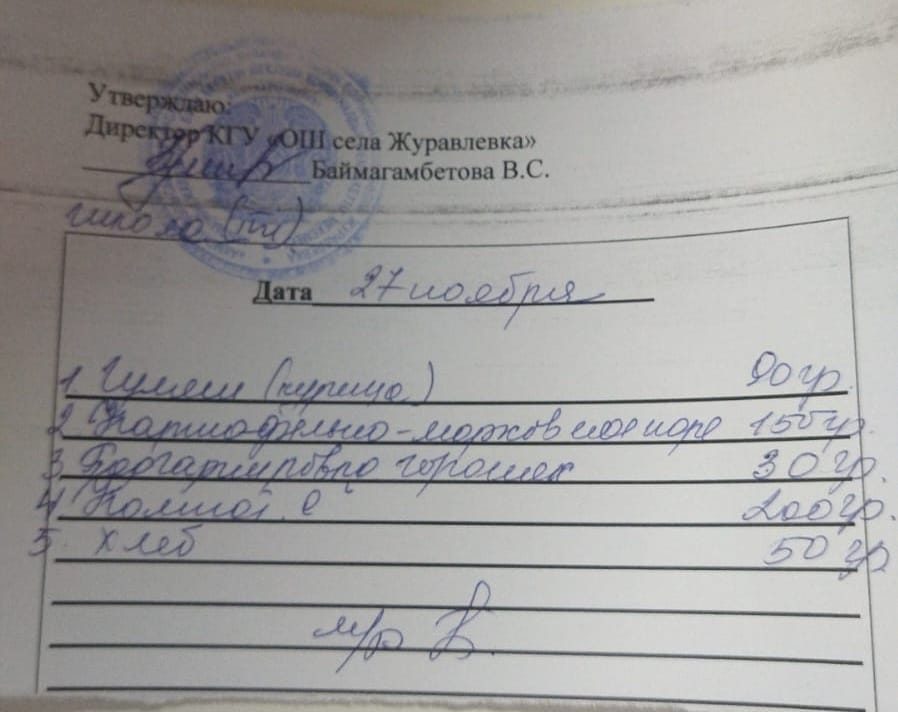 Утверждаю:
Директор КГУ «ОШ села Журавлевка»
Баймагамбетова В.С.
школа
Дата 27 ноября
1 Гуляш (курица) 90 гр.
2 Картофельно-морковное пюре 150 гр.
3. горошек 30 гр.
4. Компот С 200 гр.
5. хлеб 50 гр
м/р